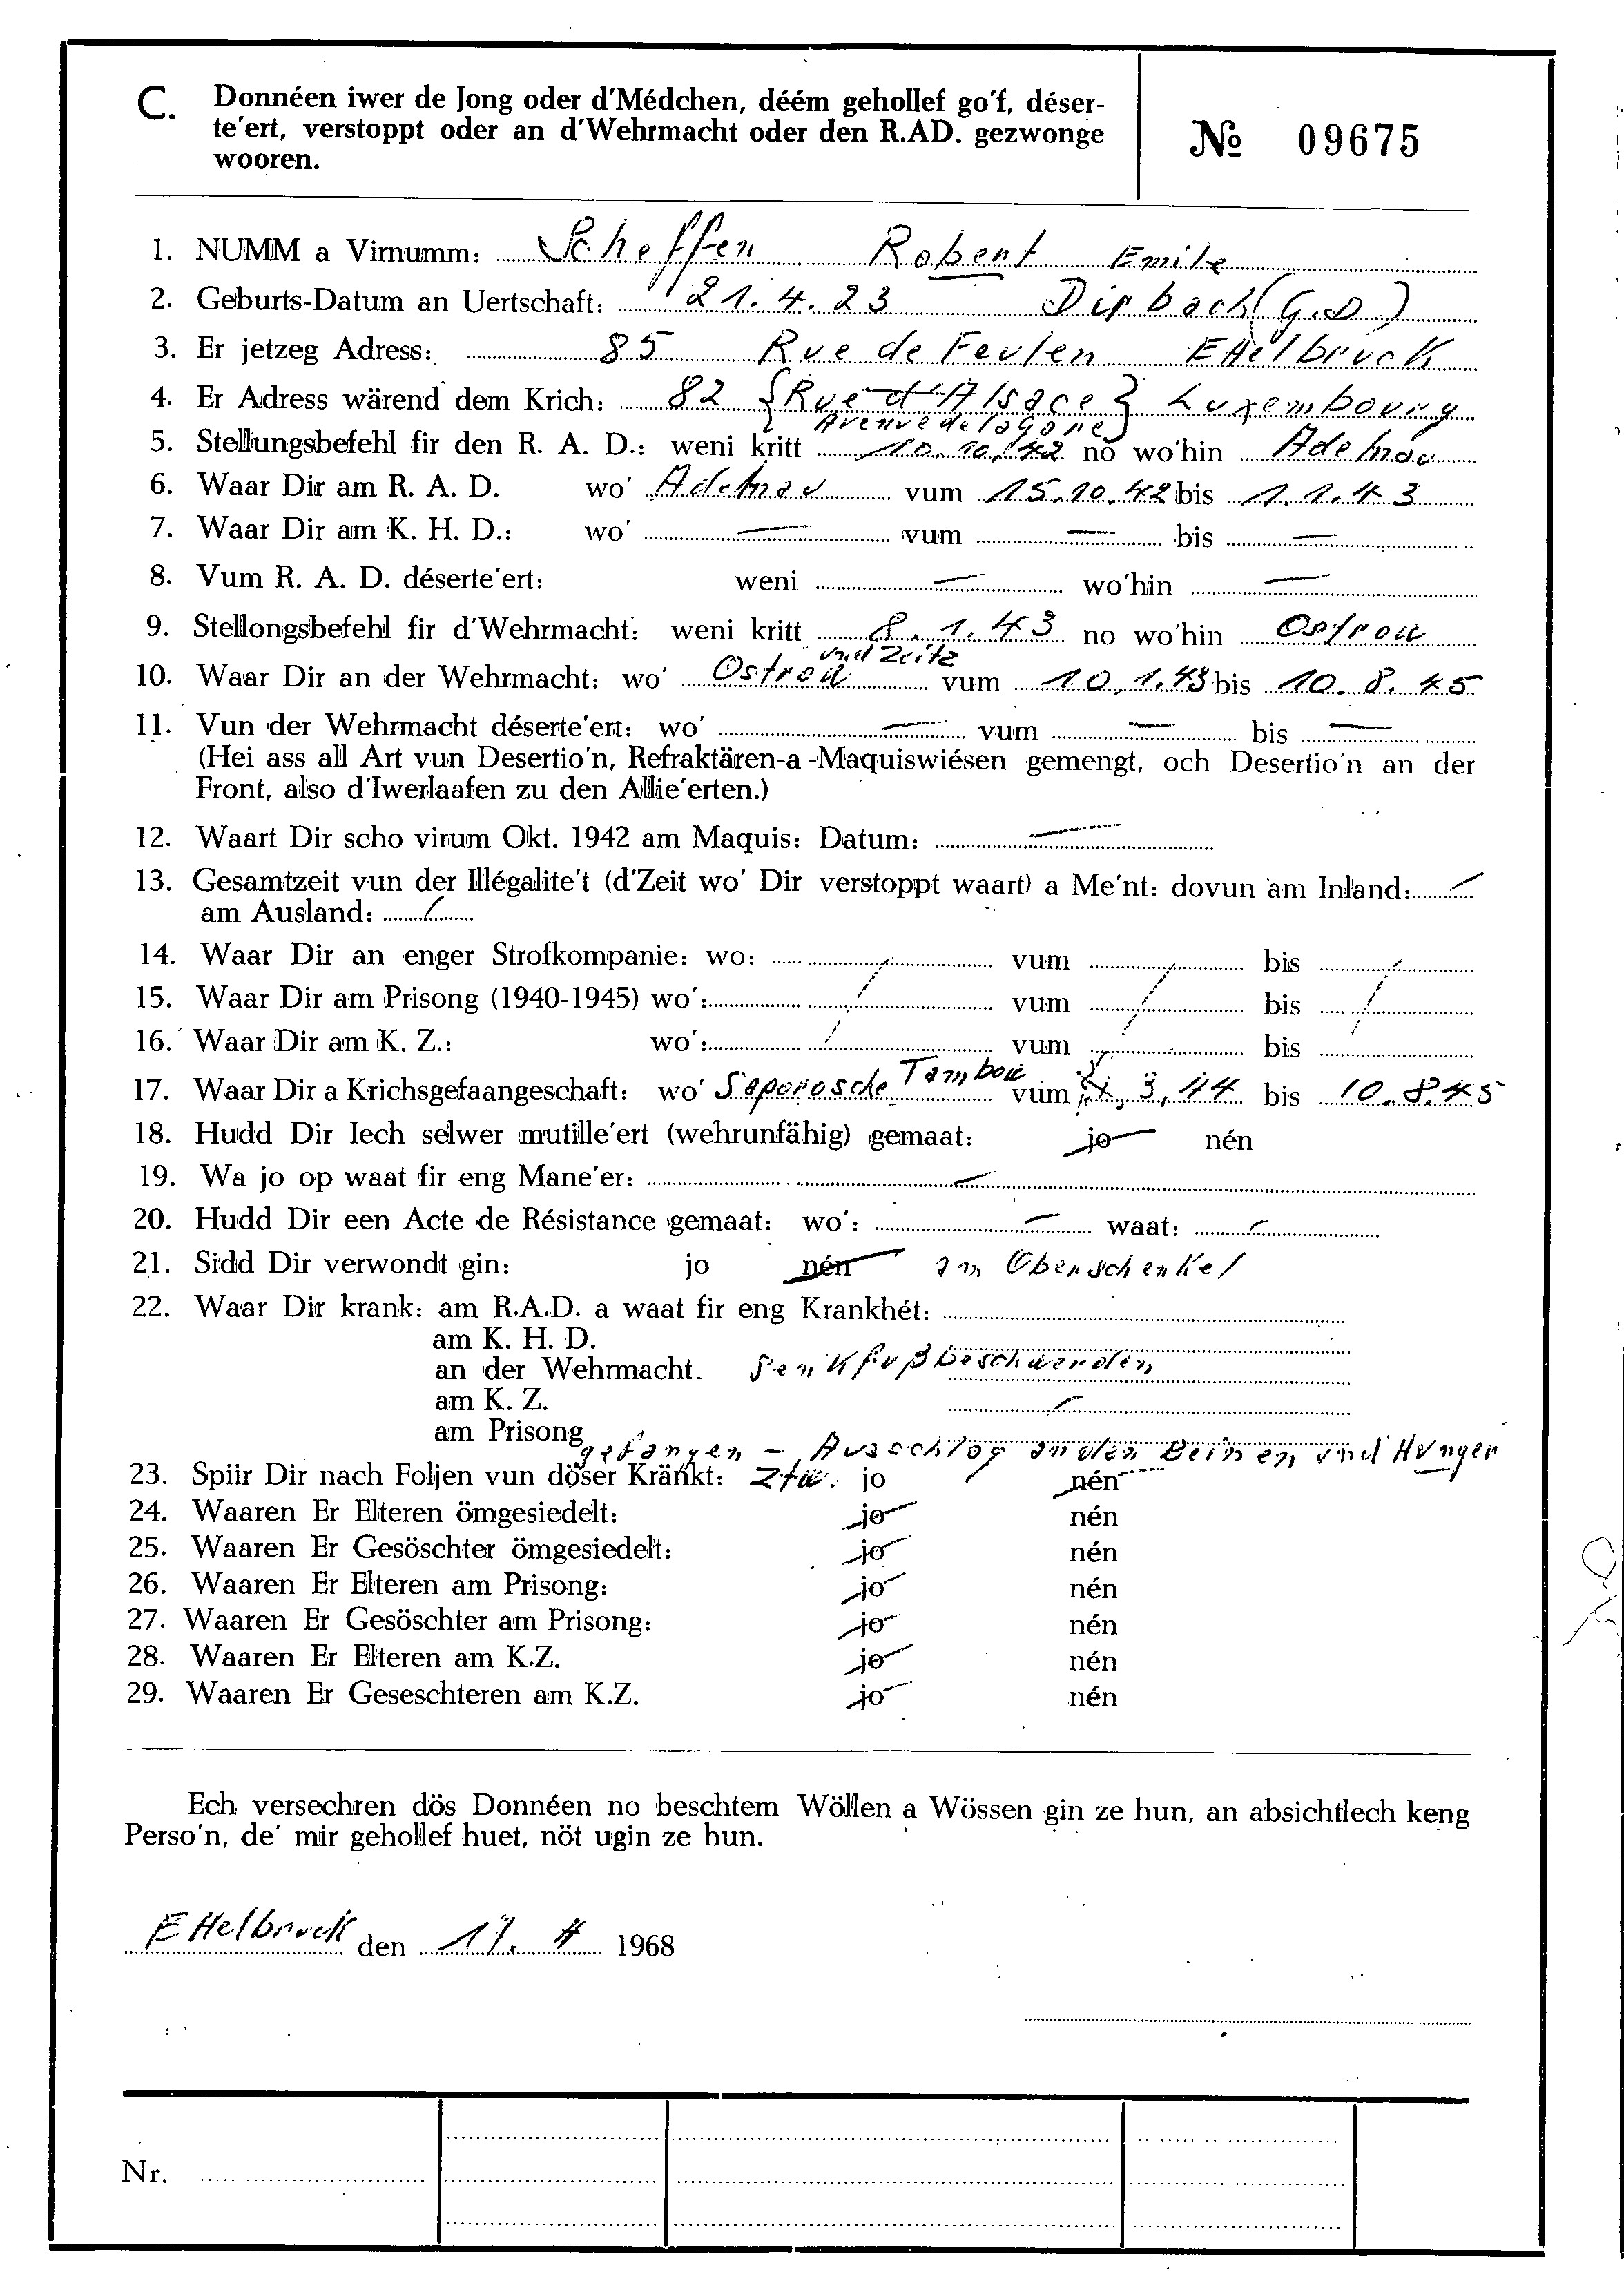 C. Donnéen iwer de Jong oder d'Médchen, déém gehollef go'f, déser-
te'ert, verstoppt oder an d'Wehrmacht oder den R.AD. gezwonge
wooren.
№ 09675
1. NUMM a Virnumm: Scheffen Robert Emile
2. Geburts-Datum an Uertschaft: 21.4.23 Dirbach (G.D.)
3. Er jetzeg Adress: 85 Rue de Feulen Ettelbruck
4. Er Adress wärend dem Krich: 82 {Rue d'Alsace} Luxembourg
Avenue de la Gare
5. Stellungsbefehl fir den R. A. D.: weni kritt 10.10.42 no wo'hin Adelnau
6. Waar Dir am R. A. D. wo' Adelnau vum 15.10.42 bis 1.1.43
7. Waar Dir am K. H. D.: wo' — vum — bis —
8. Vum R. A. D. déserte'ert: weni — wo'hin —
9. Stellongsbefehl fir d'Wehrmacht: weni kritt 8.1.43 no wo'hin Ostrau
und Zeitz
10. Waar Dir an der Wehrmacht: wo' Ostrau vum 10.1.43 bis 10.8.45
11. Vun der Wehrmacht déserte'ert: wo' — vum — bis —
(Hei ass all Art vun Desertio'n, Refraktären-a-Maquiswiésen gemengt, och Desertio'n an der
Front, also d'Iwerlaafen zu den Allie'erten.)
12. Waart Dir scho virum Okt. 1942 am Maquis: Datum: —
13. Gesamtzeit vun der Illégalite't (d'Zeit wo' Dir verstoppt waart) a Me'nt: dovun am Inland: —
am Ausland: /
14. Waar Dir an enger Strofkompanie: wo: / vum / bis /
15. Waar Dir am Prisong (1940-1945) wo': / vum / bis /
16. Waar Dir am K. Z.: wo': / vum / bis /
17. Waar Dir a Krichsgefaangeschaft: wo' Saporosche Tambow vum 3, 44 bis 10.8.45
18. Hudd Dir Iech selwer mutille'ert (wehrunfähig) gemaat: jo nén
19. Wa jo op waat fir eng Mane'er: —
20. Hudd Dir een Acte de Résistance gemaat: wo': — waat: —
21. Sidd Dir verwondt gin: jo nén am Oberschenkel
22. Waar Dir krank: am R.A.D. a waat fir eng Krankhét:
am K. H. D.
an der Wehrmacht. Senkfußbeschwerden
am K. Z. —
am Prisong
gefangen – Ausschlag an den Beinen und Hunger
23. Spiir Dir nach Foljen vun döser Kränkt: Ztw. jo nén
24. Waaren Er Elteren ömgesiedelt: jo nén
25. Waaren Er Gesöschter ömgesiedelt: jo nén
26. Waaren Er Elteren am Prisong: jo nén
27. Waaren Er Gesöschter am Prisong: jo nén
28. Waaren Er Elteren am K.Z. jo nén
29. Waaren Er Geseschteren am K.Z. jo nén
Ech versechren dös Donnéen no beschtem Wöllen a Wössen gin ze hun, an absichtlech keng
Perso'n, de' mir gehollef huet, nöt ugin ze hun.
Ettelbruck den 17. 4 1968
Nr.